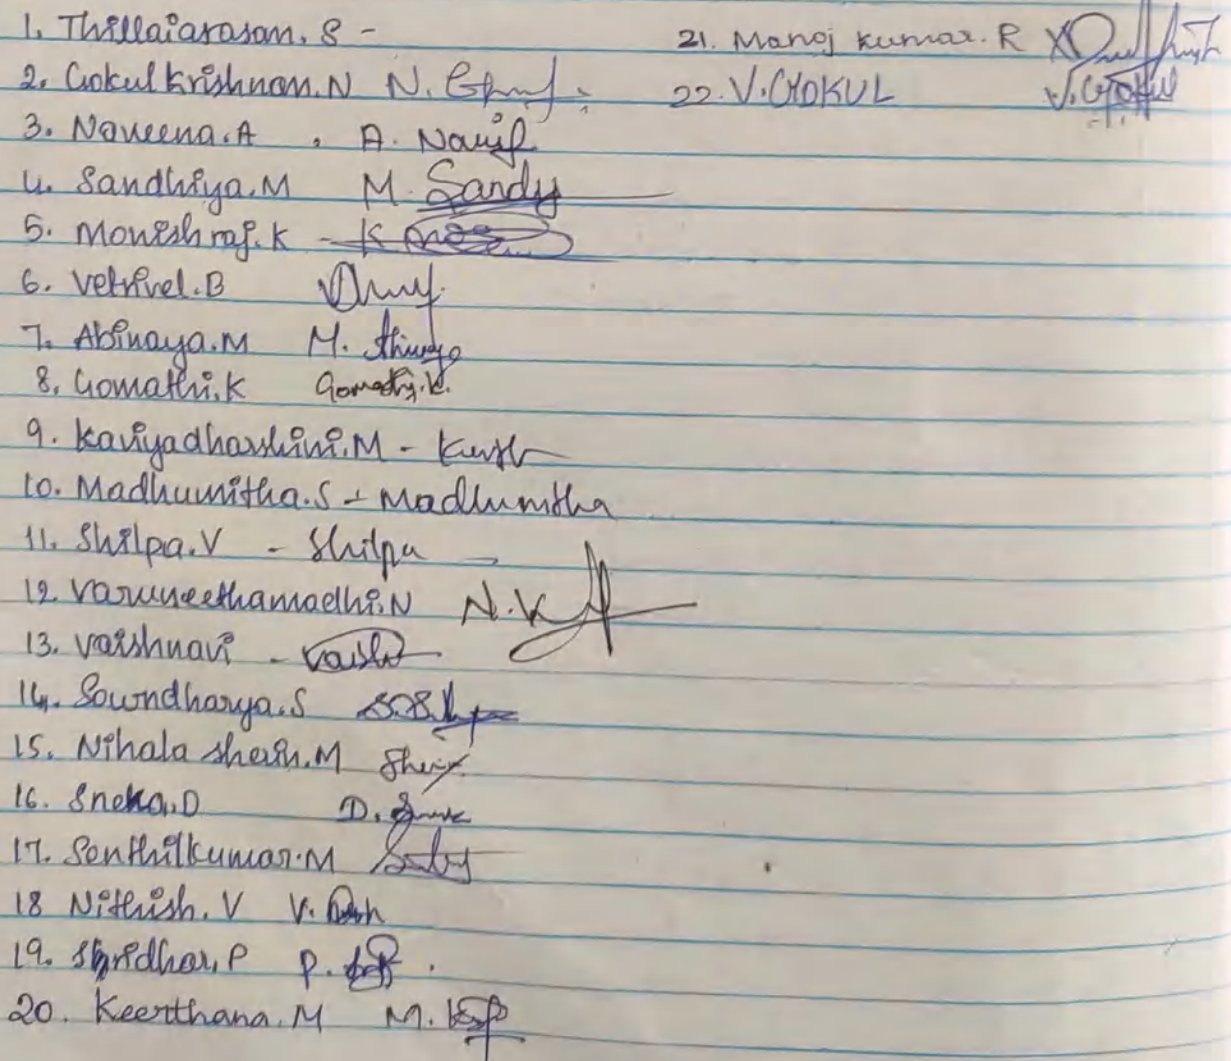 1. Thillaiarasan. S -
2. Gokul Krishnan. N N.
3. Naveena. A . A.
4. Sandhiya. M M. Sandy
5. Monish raj. K - K
6. Vetrivel. B
7. Abinaya. M M.
8. Gomathi. K Gomathy. K.
9. Kaviyadharshini. M -
10. Madhumitha. S - Madhumitha
11. Shilpa. V - Shilpa
12. Varuneethamadhi. N N. K
13. Vaishnavi -
14. Soundharya. S
15. Nihala sherin. M
16. Sneka. D D.
17. Senthilkumar. M
18 Nithish. V V.
19. Shridhar. P P.
20. Keerthana. M M.
21. Manoj Kumar. R
22. V. GOKUL V. Gokul